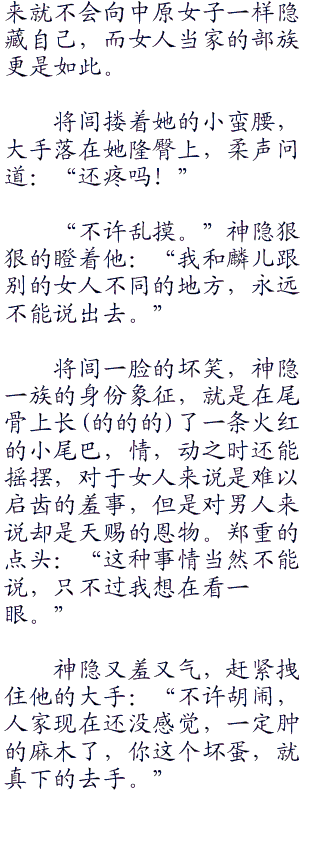 来就不会向中原女子一样隐
藏自己，而女人当家的部族
更是如此。
将闾搂着她的小蛮腰，
大手落在她隆臀上，柔声问
道：“还疼吗！”
“不许乱摸。”神隐狠
狠的瞪着他：“我和麟儿跟
别的女人不同的地方，永远
不能说出去。”
将闾一脸的坏笑，神隐
一族的身份象征，就是在尾
骨上长(的的的)了一条火红
的小尾巴，情，动之时还能
摇摆，对于女人来说是难以
启齿的羞事，但是对男人来
说却是天赐的恩物。郑重的
点头：“这种事情当然不能
说，只不过我想在看一
眼。”
神隐又羞又气，赶紧拽
住他的大手：“不许胡闹，
人家现在还没感觉，一定肿
的麻木了，你这个坏蛋，就
真下的去手。”